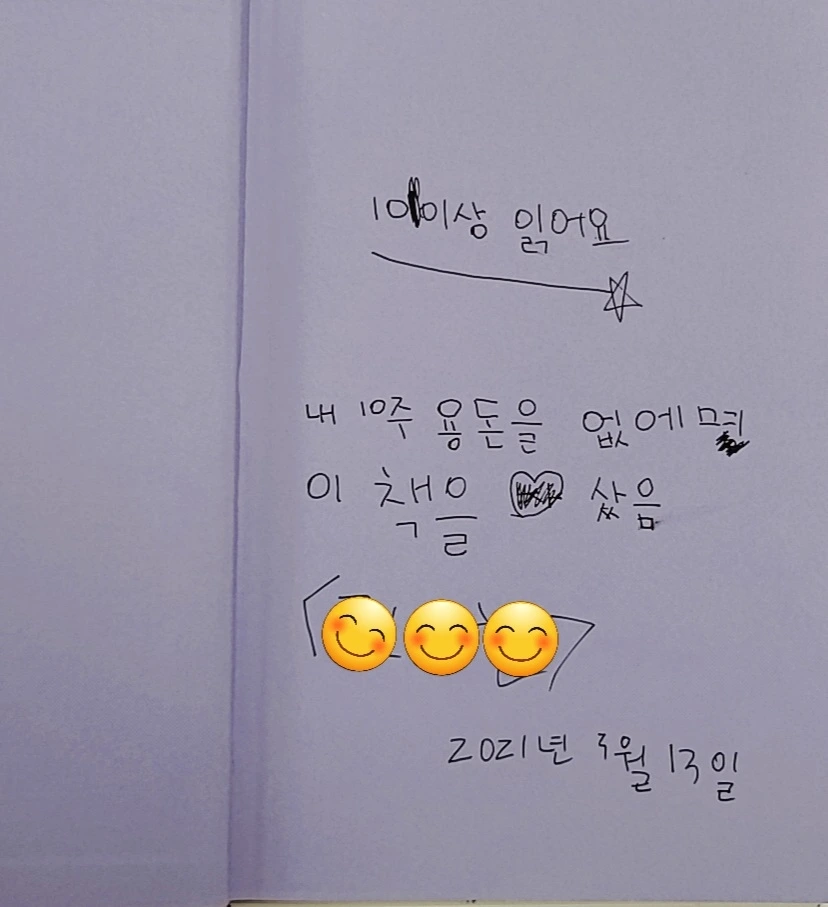 10이상 읽어요
내 10주 용돈을 없에며
이 책을 샀음
2021년 3월 13일